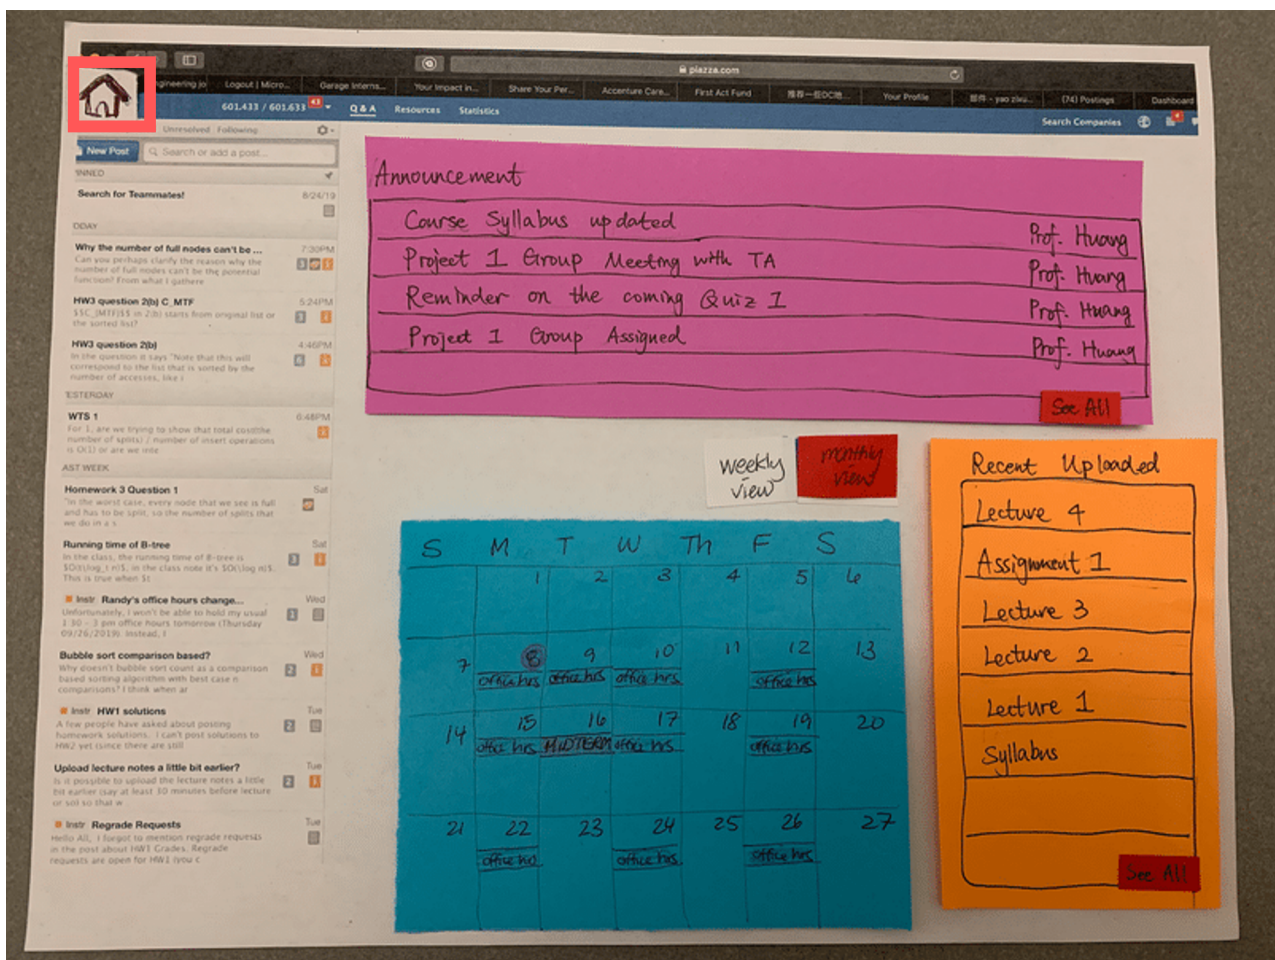 piazza.com
ngineering jo
Logout | Micro...
Garage Interns...
Your Impact in...
Share Your Per...
Accenture Care...
First Act Fund
Your Profile
(74) Postings
Dashboard
601.433 / 601.633
43
Q & A
Resources
Statistics
Search Companies
Unresolved Following
New Post
Search or add a post...
INNED
Search for Teammates!
8/24/19
ODAY
Why the number of full nodes can't be ...
7:30PM
Can you perhaps clarify the reason why the
number of full nodes can't be the potential
function? From what I gathere
3
i
HW3 question 2(b) C_MTF
5:24PM
$$C_{MTF}$$ in 2(b) starts from original list or
the sorted list?
3
i
HW3 question 2(b)
4:46PM
In the question it says "Note that this will
correspond to the list that is sorted by the
number of accesses, like i
6
i
YESTERDAY
WTS 1
6:48PM
For 1, are we trying to show that total cost(the
number of splits) / number of insert operations
is O(1) or are we inte
i
AST WEEK
Homework 3 Question 1
Sat
"In the worst case, every node that we see is full
and has to be split, so the number of splits that
we do in a s
Running time of B-tree
Sat
In the class, the running time of B-tree is
$O(t\log_t n)$, in the class note it's $O(\log n)$.
This is true when $t
3
i
Instr Randy's office hours change...
Wed
Unfortunately, I won't be able to hold my usual
1:30 - 3 pm office hours tomorrow (Thursday
09/26/2019). Instead, I
1
Bubble sort comparison based?
Wed
Why doesn't bubble sort count as a comparison
based sorting algorithm with best case n
comparisons? I think when ar
2
i
Instr HW1 solutions
Tue
A few people have asked about posting
homework solutions. I can't post solutions to
HW2 yet (since there are still
2
Upload lecture notes a little bit earlier?
Tue
Is it possible to upload the lecture notes a little
bit earlier (say at least 30 minutes before lecture
or so) so that w
2
i
Instr Regrade Requests
Tue
Hello All, I forgot to mention regrade requests
in the post about HW1 Grades. Regrade
requests are open for HW1 (you c
Announcement
Course Syllabus updated
Prof. Huang
Project 1 Group Meeting with TA
Prof. Huang
Reminder on the coming Quiz 1
Prof. Huang
Project 1 Group Assigned
Prof. Huang
See All
weekly
view
monthly
view
S M T W Th F S
1 2 3 4 5 6
7 8 9 10 11 12 13
office hrs office hrs office hrs office hrs
14 15 16 17 18 19 20
office hrs MIDTERM office hrs office hrs
21 22 23 24 25 26 27
office hrs office hrs office hrs
Recent Uploaded
Lecture 4
Assignment 1
Lecture 3
Lecture 2
Lecture 1
Syllabus
See All